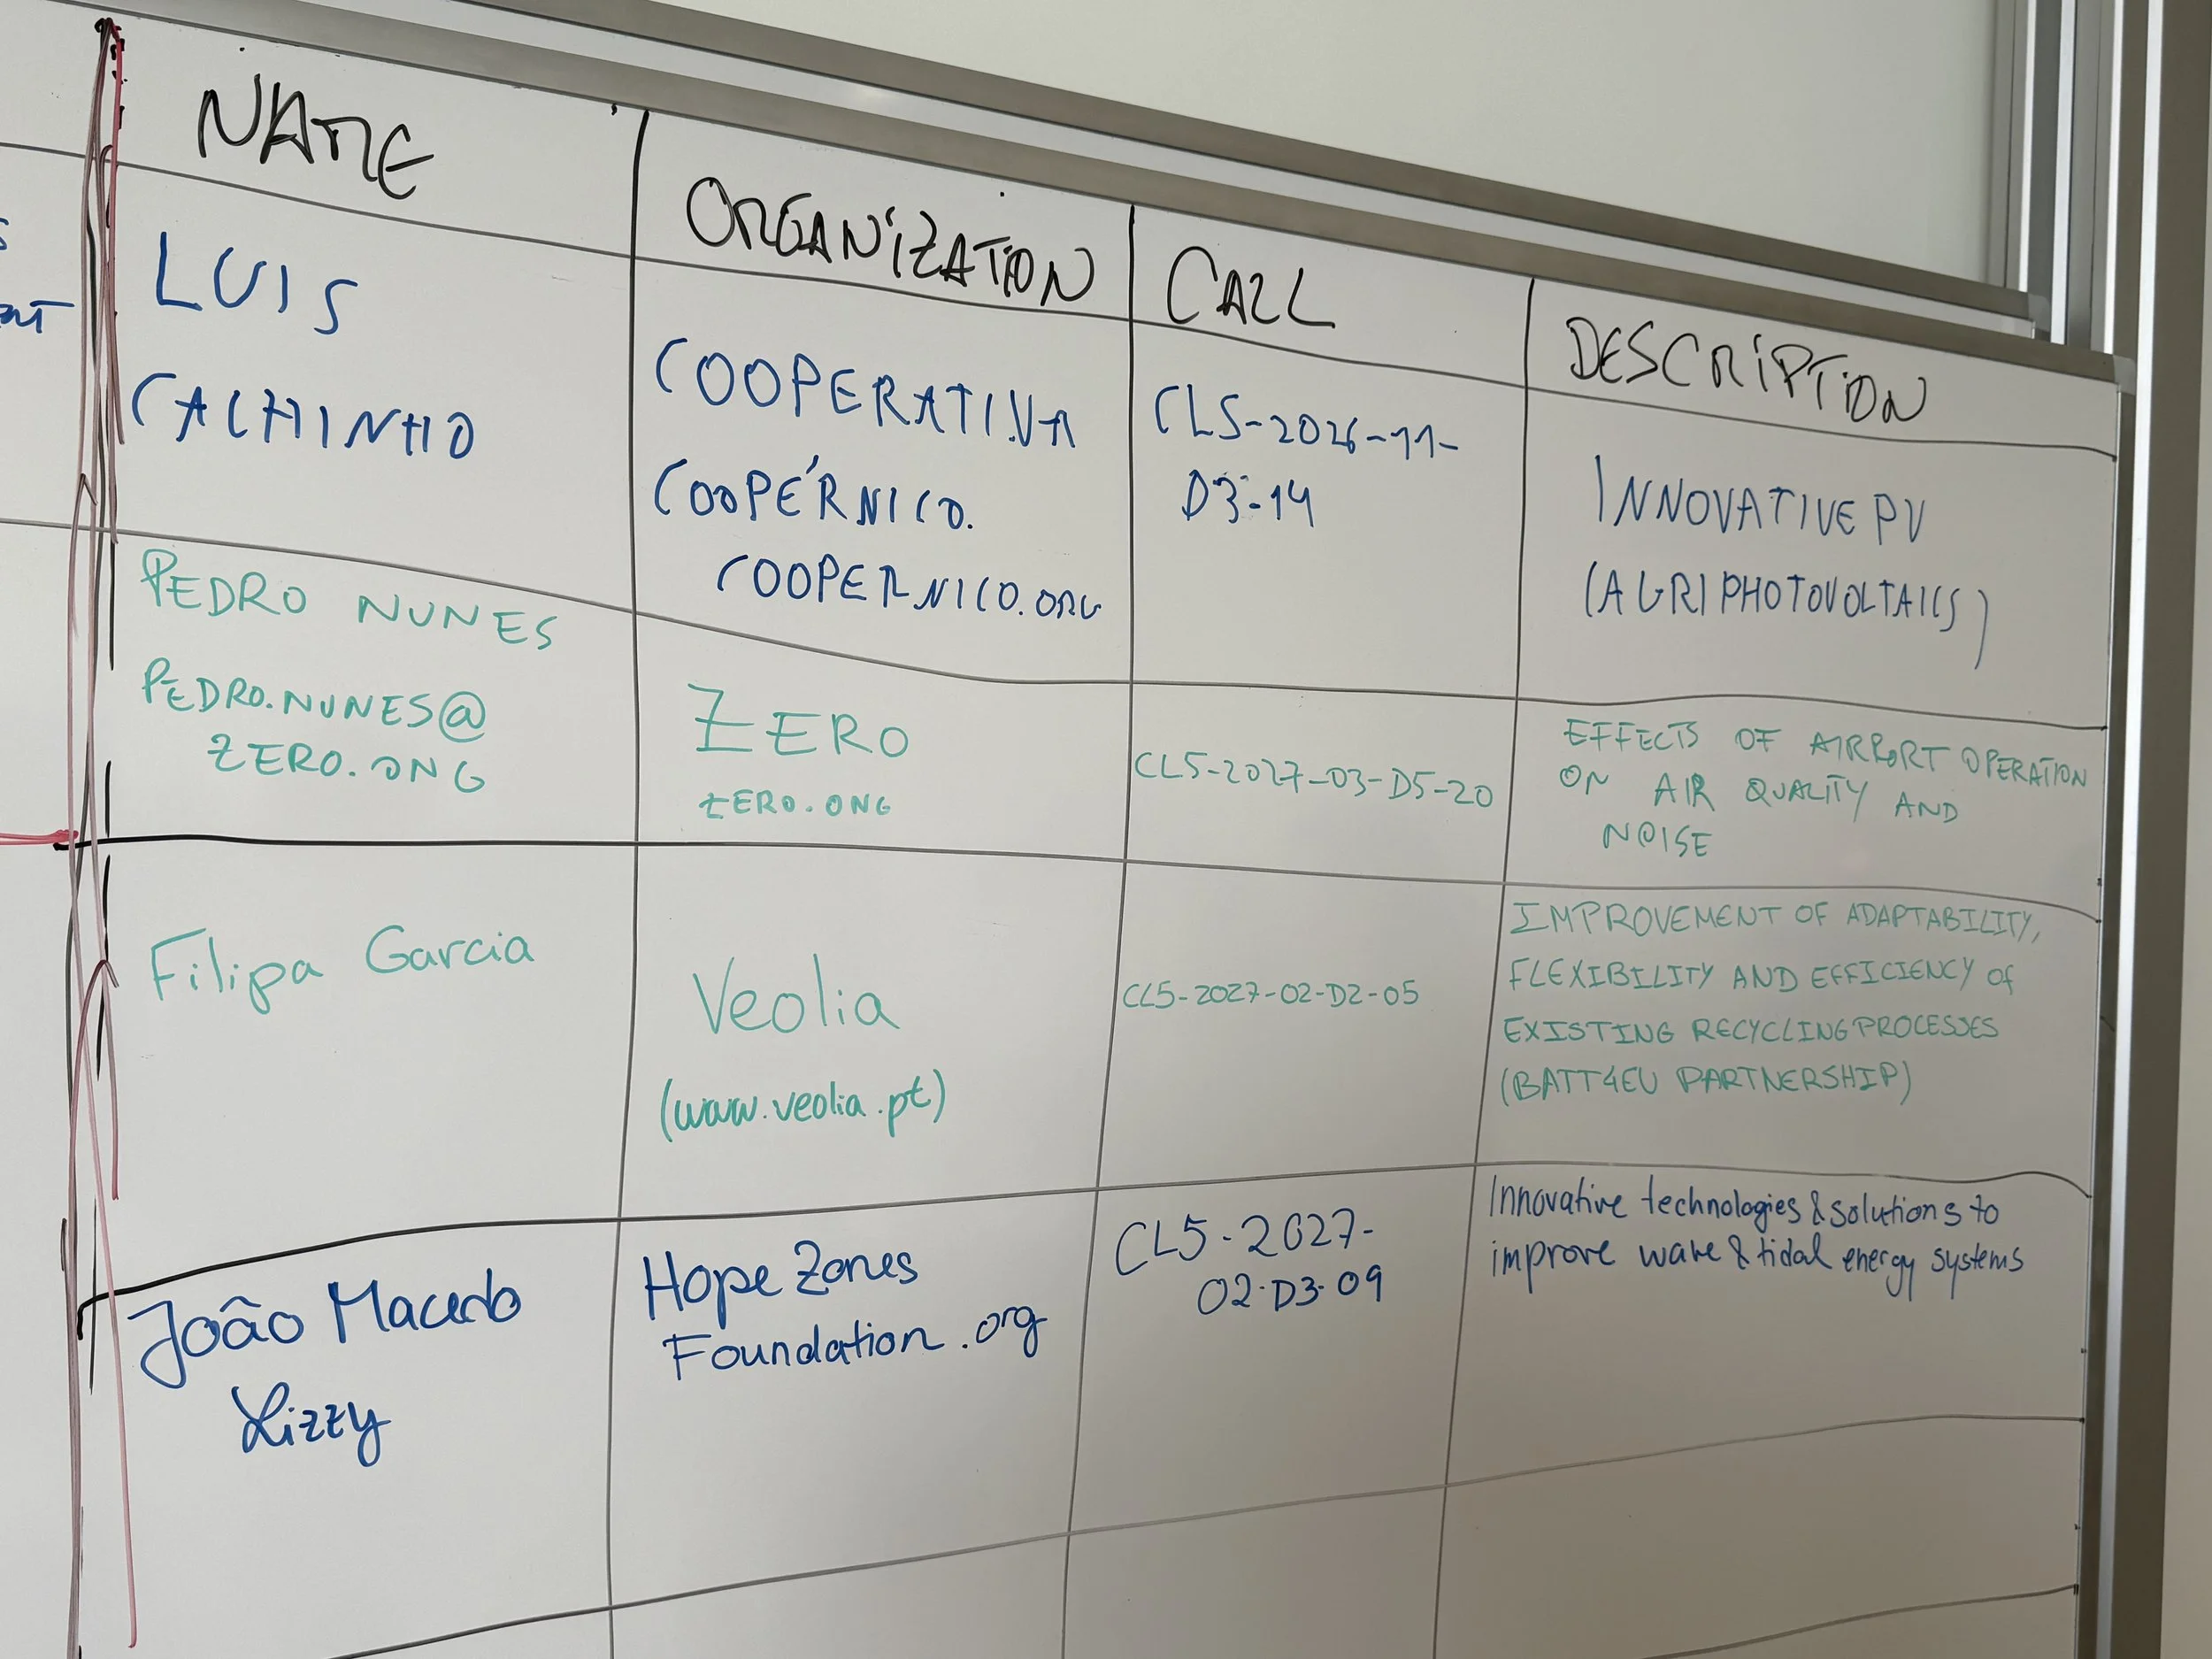 NAME
ORGANIZATION
CALL
DESCRIPTION
LUIS
CACHINHO
COOPERATIVA
COOPÉRNICO.
COOPERNICO.ORG
CL5-2026-11-
D3-14
INNOVATIVE PV
(AGRIPHOTOVOLTAICS)
PEDRO NUNES
PEDRO.NUNES@
ZERO.ONG
ZERO
ZERO.ONG
CL5-2027-03-D5-20
EFFECTS OF AIRPORT OPERATION
ON AIR QUALITY AND
NOISE
Filipa Garcia
Veolia
(www.veolia.pt)
CL5-2027-02-D2-05
IMPROVEMENT OF ADAPTABILITY,
FLEXIBILITY AND EFFICIENCY of
EXISTING RECYCLING PROCESSES
(BATT4EU PARTNERSHIP)
João Macedo
Lizzy
Hope Zones
Foundation.org
CL5-2027-
02-D3-09
Innovative technologies & solutions to
improve wave & tidal energy systems